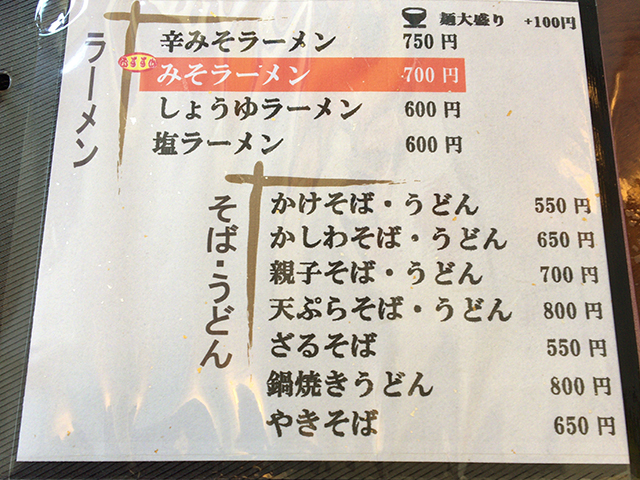 麺大盛り +100円
ラーメン
辛みそラーメン 750円
おすすめ
みそラーメン 700円
しょうゆラーメン 600円
塩ラーメン 600円
そば・うどん
かけそば・うどん 550円
かしわそば・うどん 650円
親子そば・うどん 700円
天ぷらそば・うどん 800円
ざるそば 550円
鍋焼きうどん 800円
やきそば 650円